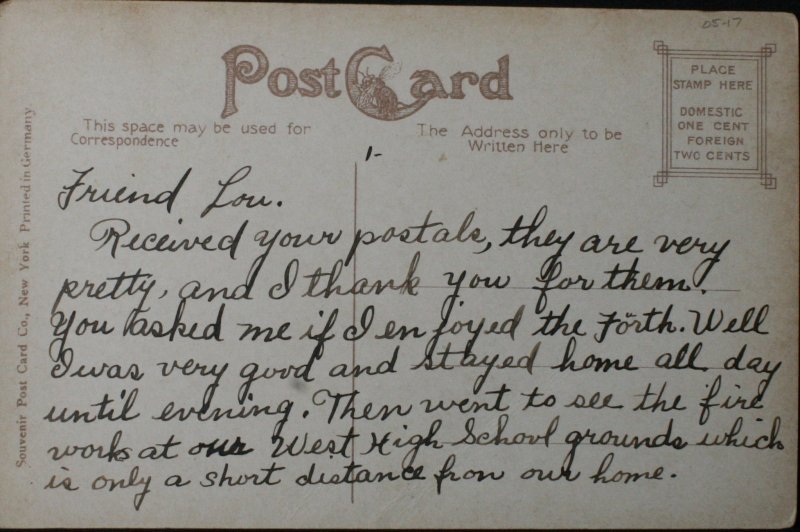 05-17
Post Card
PLACE
STAMP HERE
DOMESTIC
ONE CENT
FOREIGN
TWO CENTS
This space may be used for
Correspondence
The Address only to be
Written Here
Souvenir Post Card Co., New York Printed in Germany
1-
Friend Lou.
Received your postals, they are very
pretty, and I thank you for them.
You asked me if I enjoyed the Forth. Well
I was very good and stayed home all day
until evening. Then went to see the fire
works at our West High School grounds which
is only a short distance fron our home.